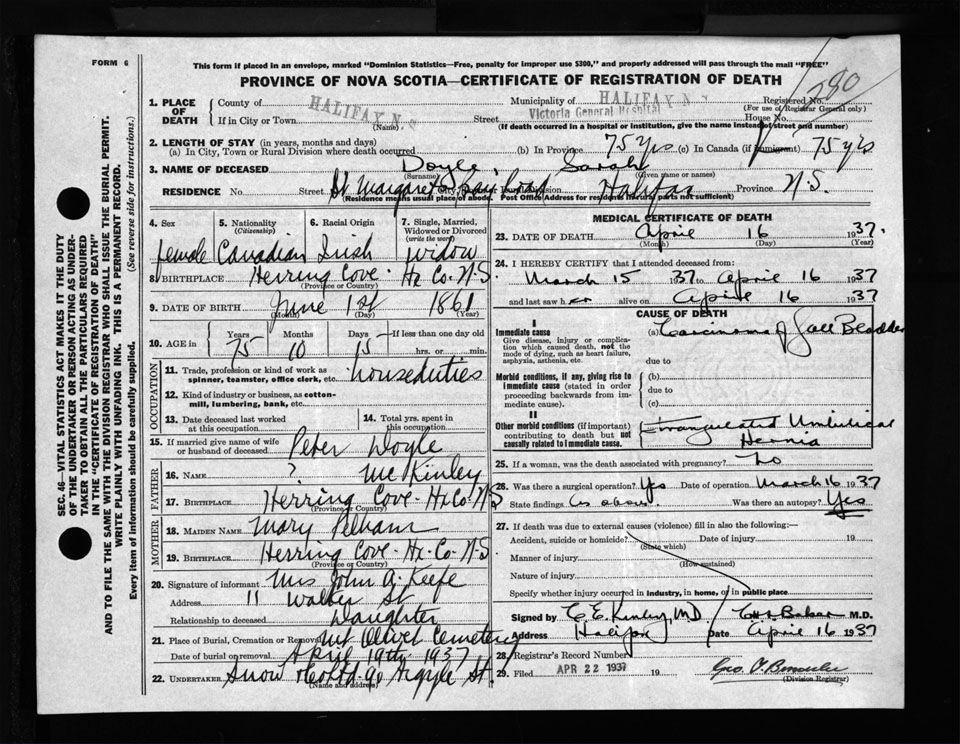 FORM 6
This form if placed in an envelope, marked "Dominion Statistics—Free, penalty for improper use $300," and properly addressed will pass through the mail "FREE"
PROVINCE OF NOVA SCOTIA—CERTIFICATE OF REGISTRATION OF DEATH
280
1. PLACE OF DEATH
County of HALIFAX N S
Municipality of HALIFAX N S
Registered No.
(For use of Registrar General only)
If in City or Town (Name) Street Victoria General Hospital House No.
(If death occurred in a hospital or institution, give the name instead of street and number)
2. LENGTH OF STAY (in years, months and days)
(a) In City, Town or Rural Division where death occurred (b) In Province 75 yrs (c) In Canada (if immigrant) 75 yrs
3. NAME OF DECEASED Doyle, Sarah
(Surname) (Given name or names)
RESIDENCE No. Street St Margarets Bay Road Halifax Province N.S.
(Residence means usual place of abode. Post Office Address for residents in rural parts not sufficient)
4. Sex female
5. Nationality (Citizenship) Canadian
6. Racial Origin Irish
7. Single, Married, Widowed or Divorced (write the word) widow
8. BIRTHPLACE Herring Cove. Hx Co. N.S
9. DATE OF BIRTH June 1st 1861
(Month) (Day) (Year)
10. AGE in Years 75 Months 10 Days 15 If less than one day old hrs. or min.
OCCUPATION
11. Trade, profession or kind of work as spinner, teamster, office clerk, etc. houseduties
12. Kind of industry or business, as cotton-mill, lumbering, bank, etc.
13. Date deceased last worked at this occupation
14. Total yrs. spent in this occupation
15. If married give name of wife or husband of deceased Peter Doyle
FATHER
16. NAME ? McKinley
17. BIRTHPLACE Herring Cove. Hx Co. N.S
(Province or Country)
MOTHER
18. MAIDEN NAME Mary Pelham
19. BIRTHPLACE Herring Cove. Hx. Co. N.S
(Province or Country)
20. Signature of informant Mrs John A. Keefe
Address 11 St
Relationship to deceased Daughter
21. Place of Burial, Cremation or Removal Mt Olivet Cemetery
Date of burial or removal April 19th 1937
22. UNDERTAKER Snow & Co Ltd. 90 Argyle St.
(Name and address)
MEDICAL CERTIFICATE OF DEATH
23. DATE OF DEATH April 16 1937.
(Month) (Day) (Year)
24. I HEREBY CERTIFY that I attended deceased from:
March 15 1937 to April 16 1937
and last saw her alive on April 16 1937
CAUSE OF DEATH
I
Immediate cause
Give disease, injury or complication which caused death, not the mode of dying, such as heart failure, asphyxia, asthenia, etc.
(a) Carcinoma of Gall Bladder
due to
Morbid conditions, if any, giving rise to immediate cause (stated in order proceeding backwards from immediate cause).
(b)
due to
(c)
II
Other morbid conditions (if important) contributing to death but not causally related to immediate cause.
Strangulated Umbilical
Hernia
25. If a woman, was the death associated with pregnancy? No
26. Was there a surgical operation? Yes Date of operation March 16 1937
State findings as above. Was there an autopsy? Yes
27. If death was due to external causes (violence) fill in also the following:—
Accident, suicide or homicide? (State which) Date of injury 19
Manner of injury (How sustained)
Nature of injury
Specify whether injury occurred in industry, in home, or in public place
Signed by C. E. Kinley, M.D. Baker M.D.
Address Halifax Date April 16 1937
28. Registrar's Record Number
29. Filed APR 22 1937 19
(Division Registrar)
SEC. 46—VITAL STATISTICS ACT MAKES IT THE DUTY
OF THE UNDERTAKER OR PERSON ACTING AS UNDER-
TAKER TO OBTAIN ALL THE PARTICULARS REQUIRED
IN THE "CERTIFICATE OF REGISTRATION OF DEATH"
AND TO FILE THE SAME WITH THE DIVISION REGISTRAR WHO SHALL ISSUE THE BURIAL PERMIT.
WRITE PLAINLY WITH UNFADING INK. THIS IS A PERMANENT RECORD.
Every item of information should be carefully supplied. (See reverse side for instructions.)